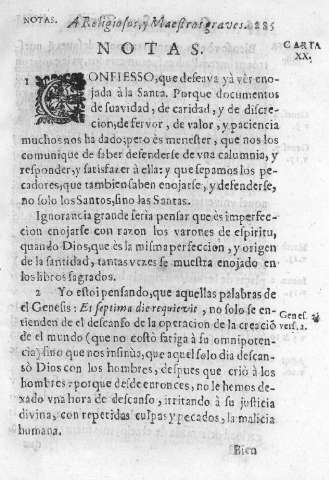 NOTAS. A Religiosos, y Maestros graves. 285
NOTAS.
CARTA
XX.
1 CONFIESSO, que deseava yà vèr eno-
jada à la Santa. Porque documentos
de suavidad, de caridad, y de discre-
cion, de fervor, de valor, y paciencia
muchos nos ha dado; pero ès menester, que nos los
comunique de saber defenderse de vna calumnia, y
responder, y satisfazer à ella: y que sepamos los pe-
cadores, que tambien saben enojarse, y defenderse,
no solo los Santos, sino las Santas.
Ignorancia grande seria pensar que ès imperfec-
cion enojarse con razon los varones de espiritu,
quando Dios, que ès la misma perfección, y origen
de la santidad, tantas vezes se muestra enojado en
los libros sagrados.
2 Yo estoi pensando, que aquellas palabras de
el Genesis: Et septima die requievit, no solo se en-
tienden de el descanso de la operacion de la creaciō
de el mundo (que no costò fatiga à su omnipoten-
cia) sino que nos insinùa, que aquel solo dia descan-
sò Dios con los hombres, despues que criò à los
hombres: porque desde entonces, no le hemos de-
xado vna hora de descanso, irritando à su justicia
divina, con repetidas culpas y pecados, la malicia
humana.
Genes. 2.
vers. 2.
Bien